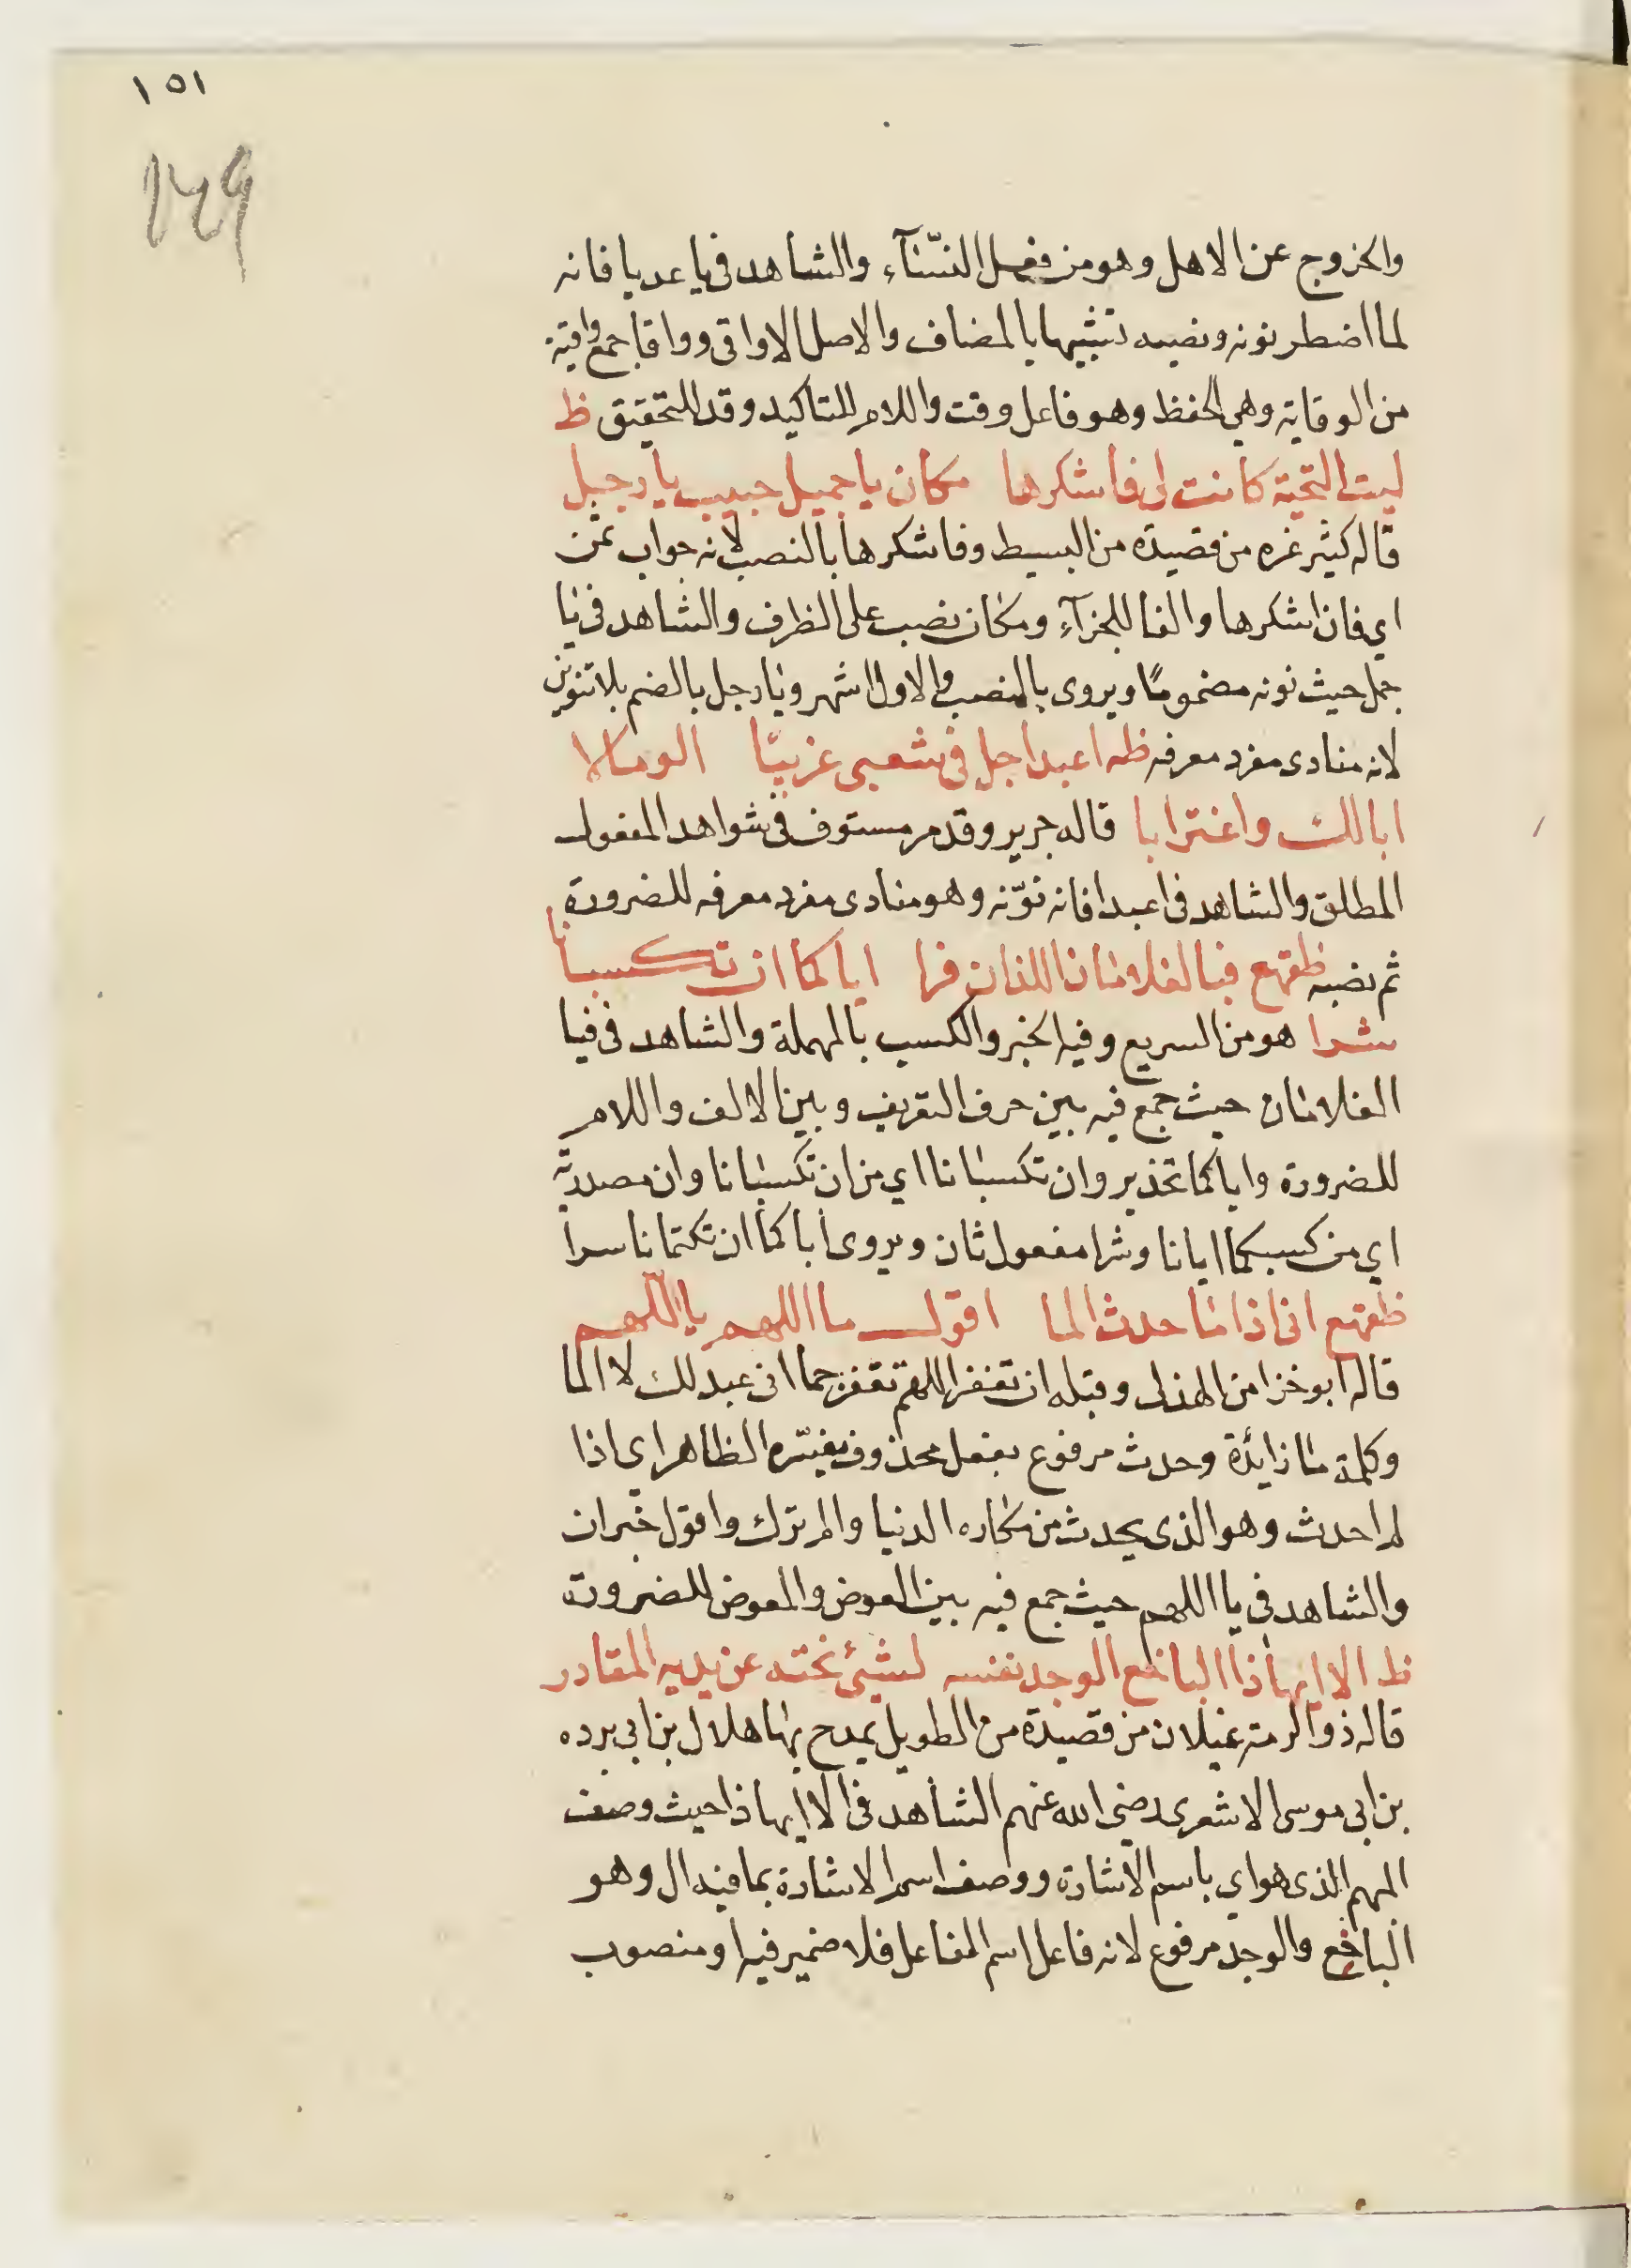 ١٥١
149
والخروج عن الاهل وهو من فعل النسّاء والشاهد في يا عديا فانه
لما اضطر نونه ونصبه تشبيها بالمضاف والاصل الاواقي وواقا جمع واقية
من الوقاية وهي الحفظ وهو فاعل وقت واللام للتاكيد وقد للتحقيق ظ
ليت التحية كانت لى فاشكرها مكان يا جميل حييت يا رجل
قاله كثير عزه من قصيدة من البسيط وفاشكرها بالنصب لانه جواب تمن
اي فان اشكرها والفا للجزآء ومكان نصب على الظرف والشاهد في يا
جمل حيث نونه مضموما ويروى بالنصب والاول اشهر ويا رجل بالضم بلا تنوين
لانه منادى مفرد معرفه ظه اعبدا حل فى شعبى غريبا الوما لا
ابالك واغترابا قاله جرير وقد مر مستوفى في شواهد المفعول
المطلق والشاهد فى اعبدا فانه نوّنه وهو منادى مفرد معرفه للضرورة
ثم نصبه ظقهع فيا الغلامان اللذان فرا اياكما ان تكسبانا
شرا هو من السريع وفيه الخبر والكسب بالمهملة والشاهد فى فيا
الغلامان حيث جمع فيه بين حرف التعريف وبين الالف واللام
للضرورة واياكما تحذير وان تكسبانا اي من ان تكسبانا وان مصدرية
اي من كسبكما ايانا وشرا مفعول ثان ويروى اياكما ان تكتمانا سرا
ظقهع انى اذا ما حدث الما اقول ما اللهم يا اللهم
قاله ابو خزامن الهذلى وقبله ان تغفر اللهم تغفر جما اى عبد لك لا الما
وكلمة ما زائدة وحدث مرفوع بفعل محذوف يفسّره الظاهر اي اذا
لم احدث وهو الذى يحدث من مكاره الدنيا والم ترك واقول خبر ان
والشاهد فى يا اللهم حيث جمع فيه بين العوض والمعوض للضرورة
ظ الا ايهاذا الباخع الوجد نفسه لشئ نحته عن يديه المقادر
قاله ذو الرمة غيلان من قصيدة من الطويل يمدح بها هلال بن ابى برده
بن ابى موسى الاشعرى رضي الله عنهم الشاهد فى الا ايهاذا حيث وصف
المبهم الذى هو اي باسم الاشارة ووصف اسم الاشارة بما فيه ال وهو
الباخع والوجد مرفوع لانه فاعل اسم الفاعل فلا ضمير فيه او منصوب